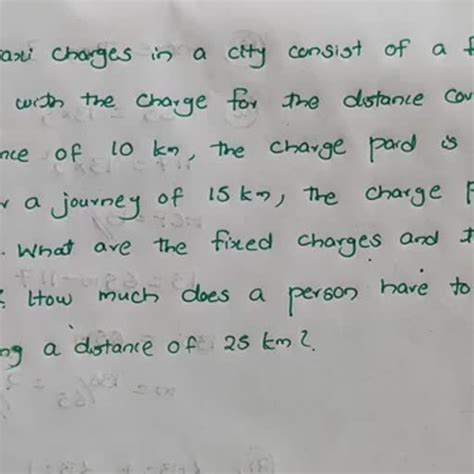 axi charges in a city consist of a f
with the charge for the distance cov
nce of 10 km, the charge paid is
r a journey of 15 km, the charge p
. What are the fixed charges and t
? How much does a person have to
ng a distance of 25 km?